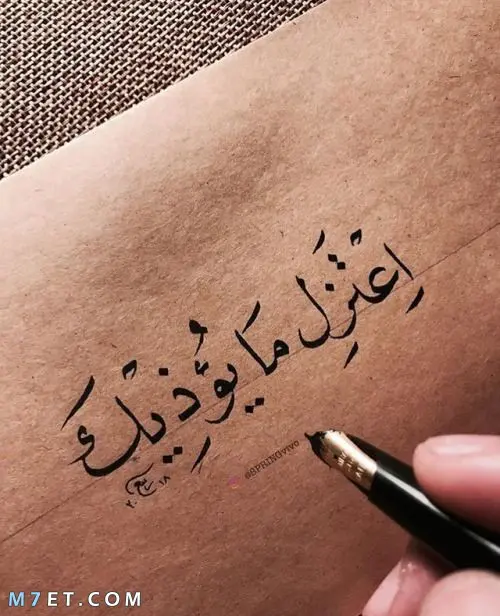 اِعْتَزِل مَا يُؤذِيْك
@SPRINGVIVO
M7ET.COM